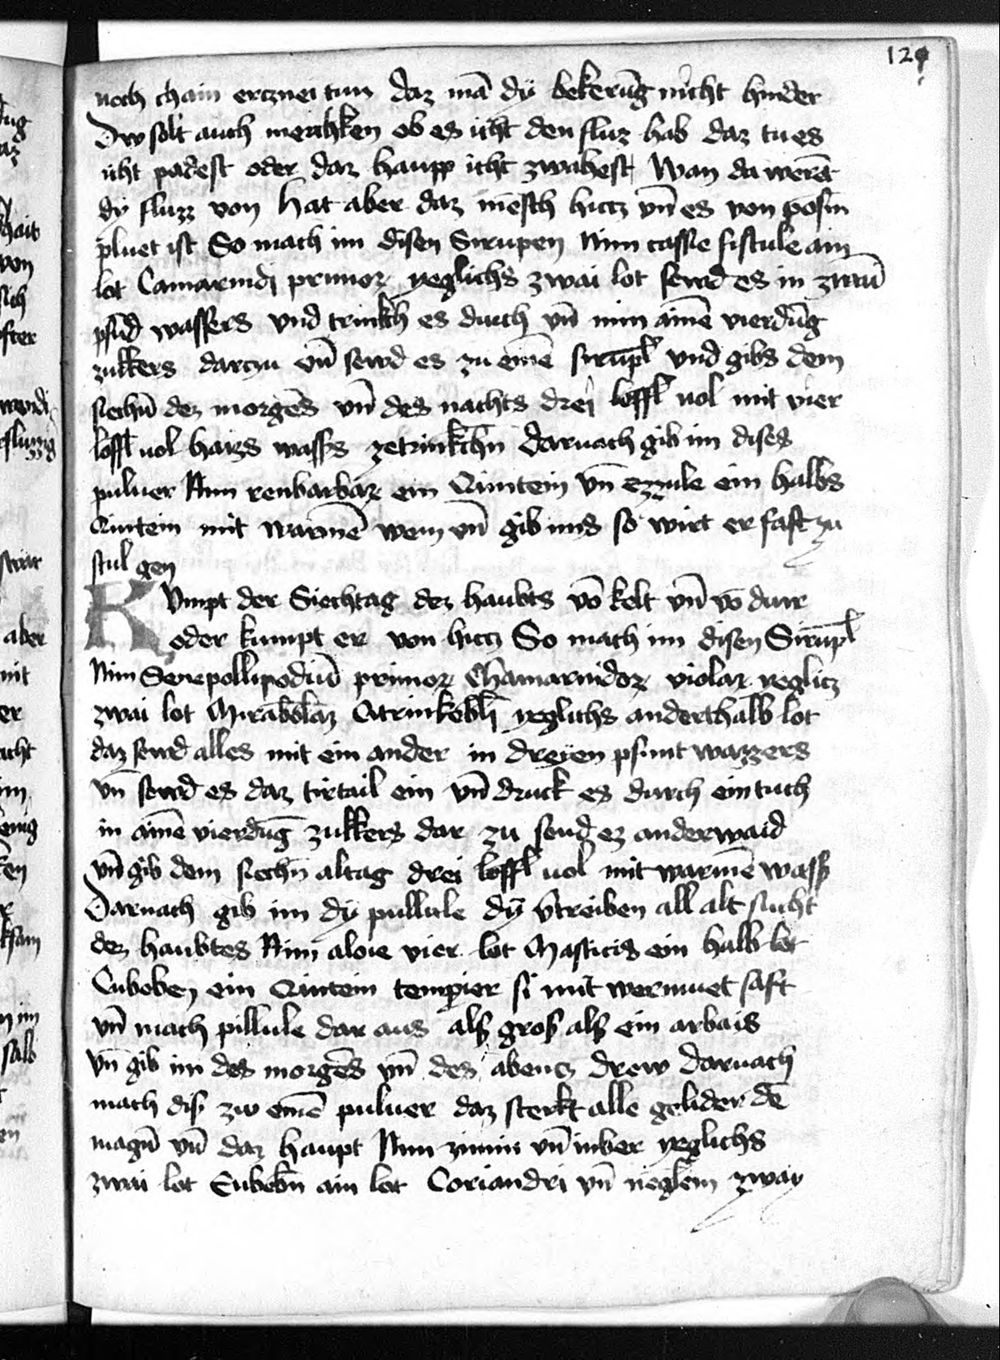 129
noch chain ercznei tun daz mā dy bekerūg nicht hinder
Dw solt auch merchken ob es icht den fluz hab daz tu es
icht padest oder daz haupp icht zwahest Wan da werēt
dy fluzz von hat aber daz mēsch hicz vn̄ es von posm̄
pluet ist So mach im disen Sirupen Nim cassie fistule ain
lot Tamarindi prunoꝝ yeglichs zwai lot sewd es in zwaī
pfūd wassers vnd trinkch es durch vn̄ nim ainē vierdūg
zukkers darczu vn̄ sewd es zu einē sirupl̄ vnd gibs dem
siechn̄ dez morgēs vn̄ des nachts drej loffl̄ uol mit vier
loffl̄ uol haizs wasss zetrinkchn̄ Darnach gib im dises
puluer Nim reubarbaꝝ ein Quintein vn̄ ezzule ein halbs
Quintein mit warmē wein vn̄ gib ims so wirt er fast zu
stul gen
Kumpt der Siechtag dez haubts vō kelt vn̄ vō durr
oder kumpt er von hicz So mach im disen Sirupl̄
Nim Sene pollipodiū prunoꝝ Thamarindoꝝ violaꝝ yeglicz
zwai lot Mirabolaꝝ Citrinkebl̄i yeglichs anderthalb lot
daz sewd alles mit ein ander in dreyen pfunt wazzers
vn̄ sewd es daz tirtail ein vn̄ druck es durch ein tuch
in ainē vierdūg zukkers dar zu seud ez anderwaid
vn̄ gib dem siechn̄ altag drei loffl̄ uol mit warmē wasß
Darnach gib im dy pullule dy v̄treiben all alt sucht
dez haubtes Nim aloie vier lot Masticis ein halb lot
Cubeben ein Quintein tempier si mit wermuet saft
vn̄ mach pillule dar aus alß gros alß ein arbais
vn̄ gib im des morgēs vn̄ des abencz drew Darnach
mach diß zw einē puluer daz sterkt alle gelider dē
magn̄ vn̄ daz haupt Nim zimin vn̄ inber yeglichs
zwai lot Cubebn̄ ain lot Coriandri vn̄ neglein zway